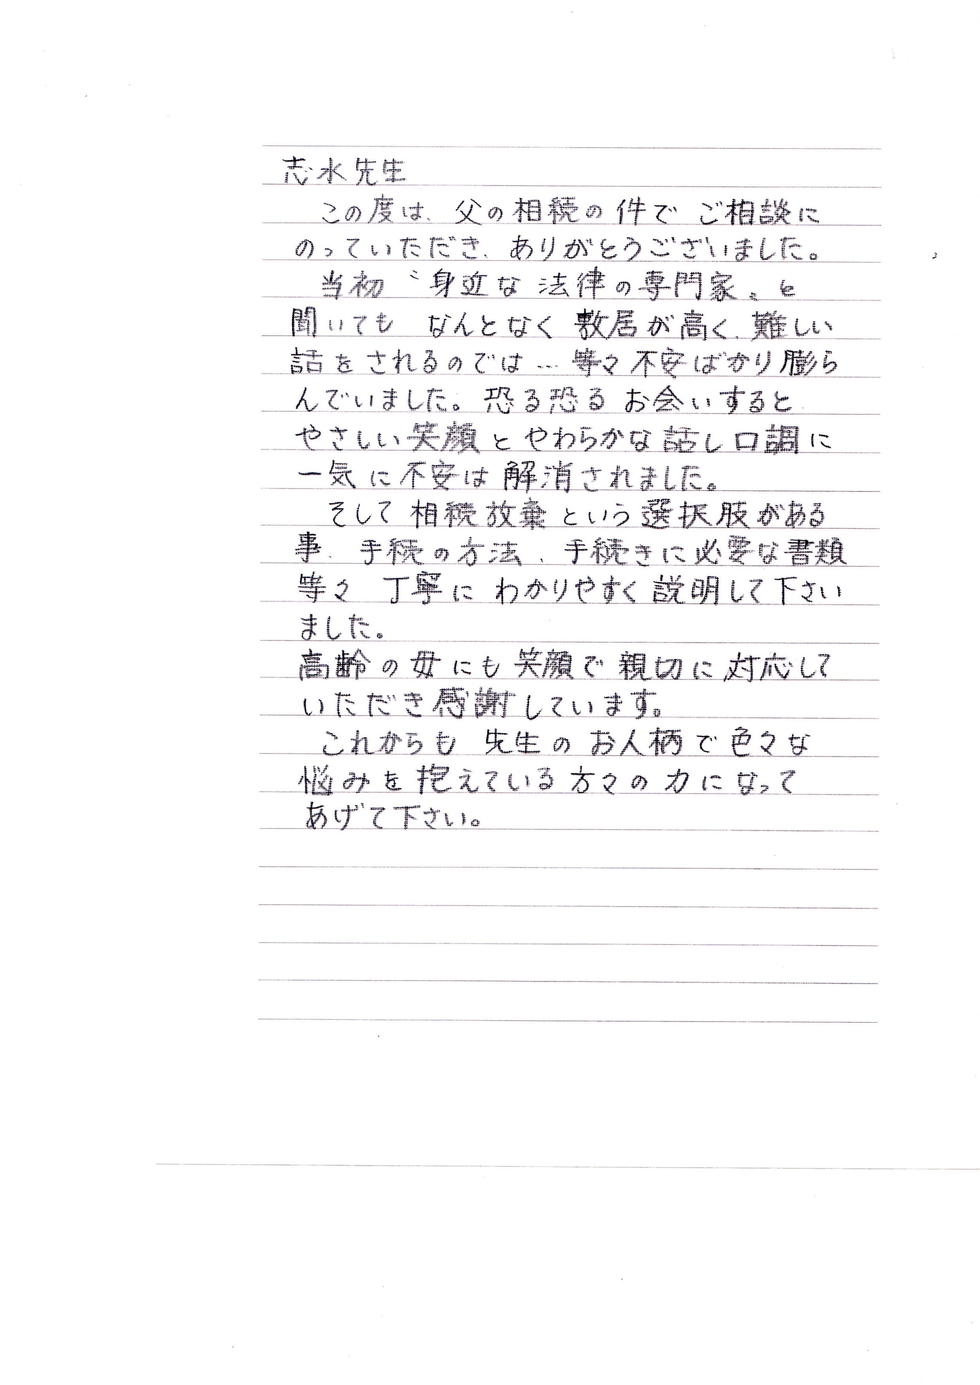 志水先生
この度は、父の相続の件で ご相談に
のっていただき、ありがとうございました。
当初 〝身近な 法律の専門家〟と
聞いても なんとなく 敷居が高く、難しい
話をされるのでは… 等々不安ばかり膨ら
んでいました。恐る恐る お会いすると
やさしい笑顔と やわらかな話し口調に
一気に不安は 解消されました。
そして 相続放棄という選択肢がある
事、手続の方法、手続きに必要な書類
等々 丁寧に わかりやすく説明して下さい
ました。
高齢の母にも 笑顔で 親切に対応して
いただき感謝しています。
これからも 先生の お人柄で色々な
悩みを抱えている方々の力になって
あげて下さい。